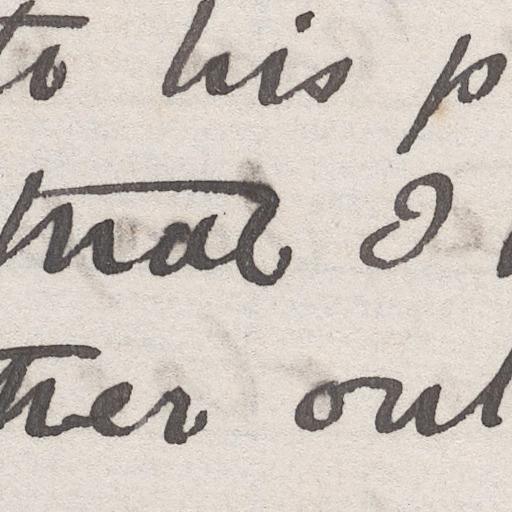 to his p
that I
ther out